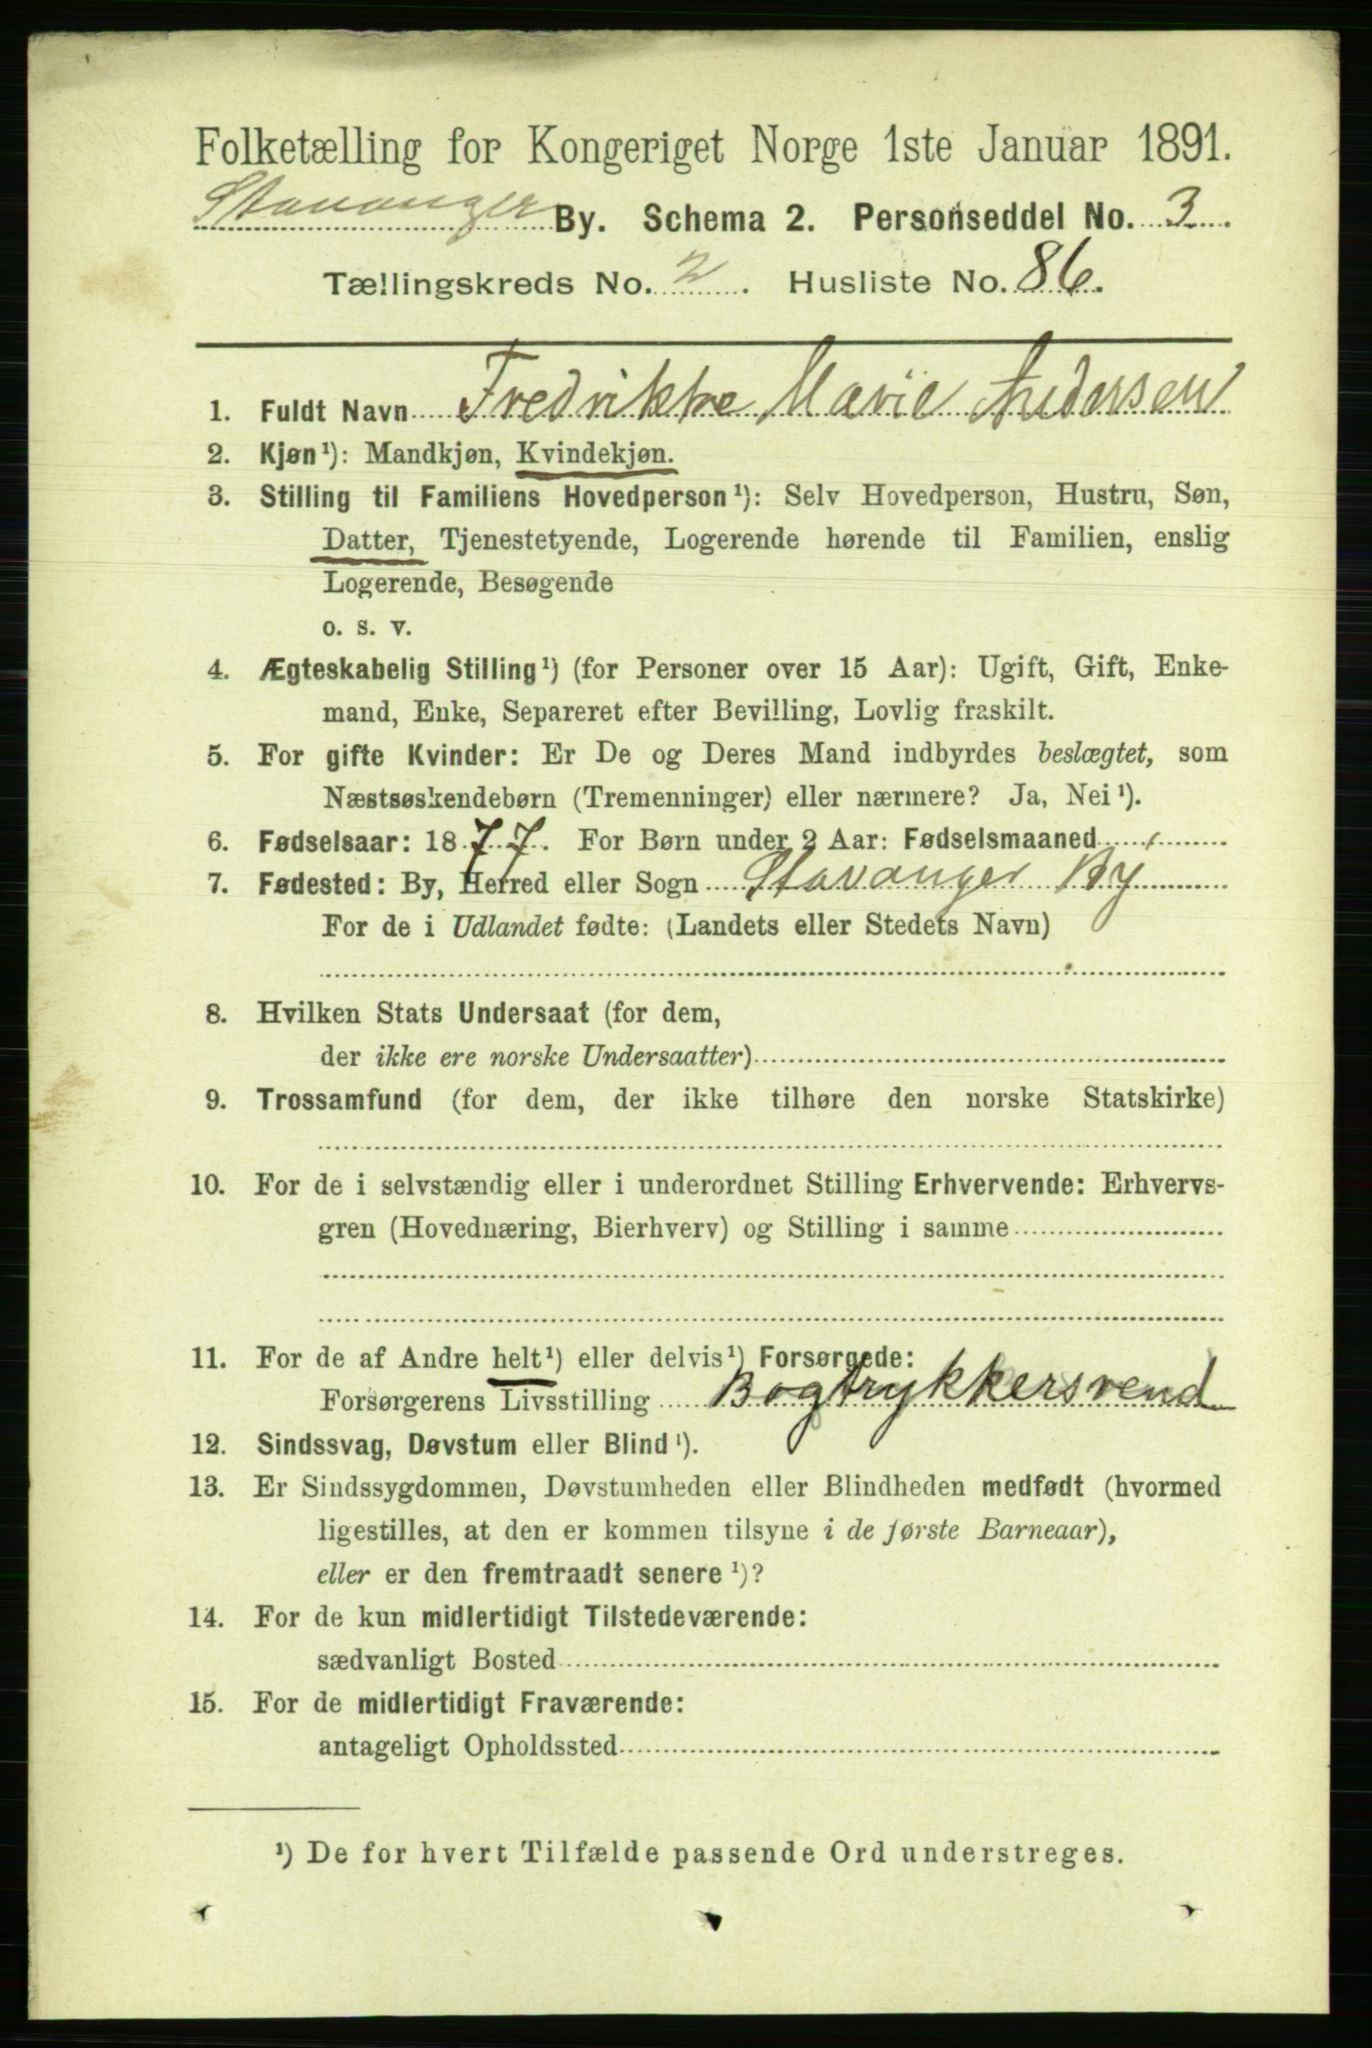 Folketælling for Kongeriget Norge 1ste Januar 1891.
Stavanger By. Schema 2. Personseddel No. 3.
Tællingskreds No. 2. Husliste No. 86.
1. Fuldt Navn Fredrikke Marie Andersen
2. Kjøn¹): Mandkjøn, Kvindekjøn.
3. Stilling til Familiens Hovedperson¹): Selv Hovedperson, Hustru, Søn,
Datter, Tjenestetyende, Logerende hørende til Familien, enslig
Logerende, Besøgende
o. s. v.
4. Ægteskabelig Stilling¹) (for Personer over 15 Aar): Ugift, Gift, Enke-
mand, Enke, Separeret efter Bevilling, Lovlig fraskilt.
5. For gifte Kvinder: Er De og Deres Mand indbyrdes beslægtet, som
Næstsøskendebørn (Tremenninger) eller nærmere? Ja, Nei¹).
6. Fødselsaar: 1877. For Børn under 2 Aar: Fødselsmaaned
7. Fødested: By, Herred eller Sogn Stavanger By
For de i Udlandet fødte: (Landets eller Stedets Navn)
8. Hvilken Stats Undersaat (for dem,
der ikke ere norske Undersaatter)
9. Trossamfund (for dem, der ikke tilhøre den norske Statskirke)
10. For de i selvstændig eller i underordnet Stilling Erhvervende: Erhvervs-
gren (Hovednæring, Bierhverv) og Stilling i samme
11. For de af Andre helt¹) eller delvis¹) Forsørgede:
Forsørgerens Livsstilling Bogtrykkersvend
12. Sindssvag, Døvstum eller Blind¹).
13. Er Sindssygdommen, Døvstumheden eller Blindheden medfødt (hvormed
ligestilles, at den er kommen tilsyne i de første Barneaar),
eller er den fremtraadt senere¹)?
14. For de kun midlertidigt Tilstedeværende:
sædvanligt Bosted
15. For de midlertidigt Fraværende:
antageligt Opholdssted
¹) De for hvert Tilfælde passende Ord understreges.